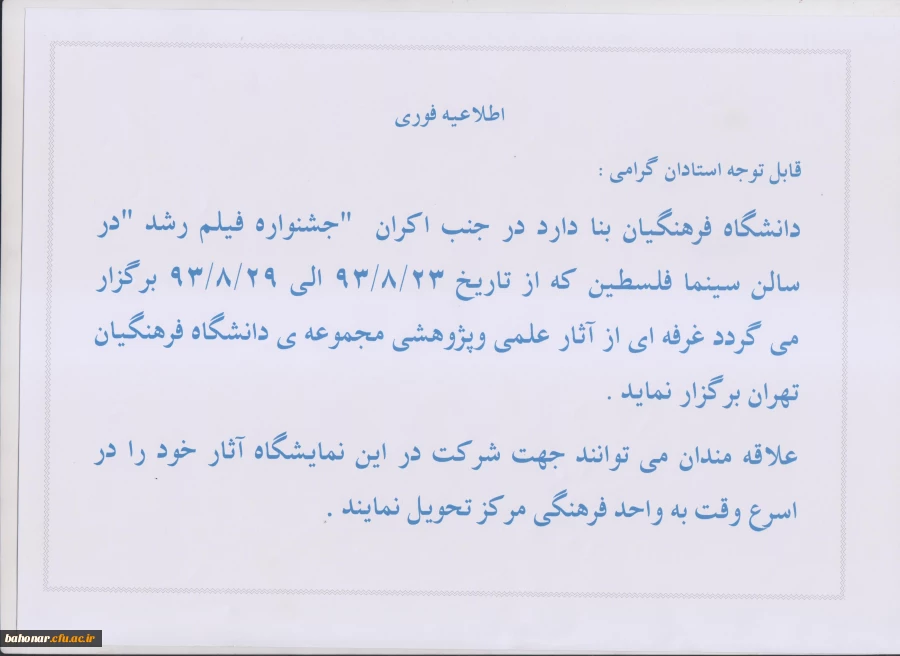 اطلاعیه فوری
قابل توجه استادان گرامی :
دانشگاه فرهنگیان بنا دارد در جنب اکران "جشنواره فیلم رشد "در
سالن سینما فلسطین که از تاریخ ۹۳/۸/۲۳ الی ۹۳/۸/۲۹ برگزار
می گردد غرفه ای از آثار علمی وپژوهشی مجموعه ی دانشگاه فرهنگیان
تهران برگزار نماید .
علاقه مندان می توانند جهت شرکت در این نمایشگاه آثار خود را در
اسرع وقت به واحد فرهنگی مرکز تحویل نمایند .
bahonar.cfu.ac.ir